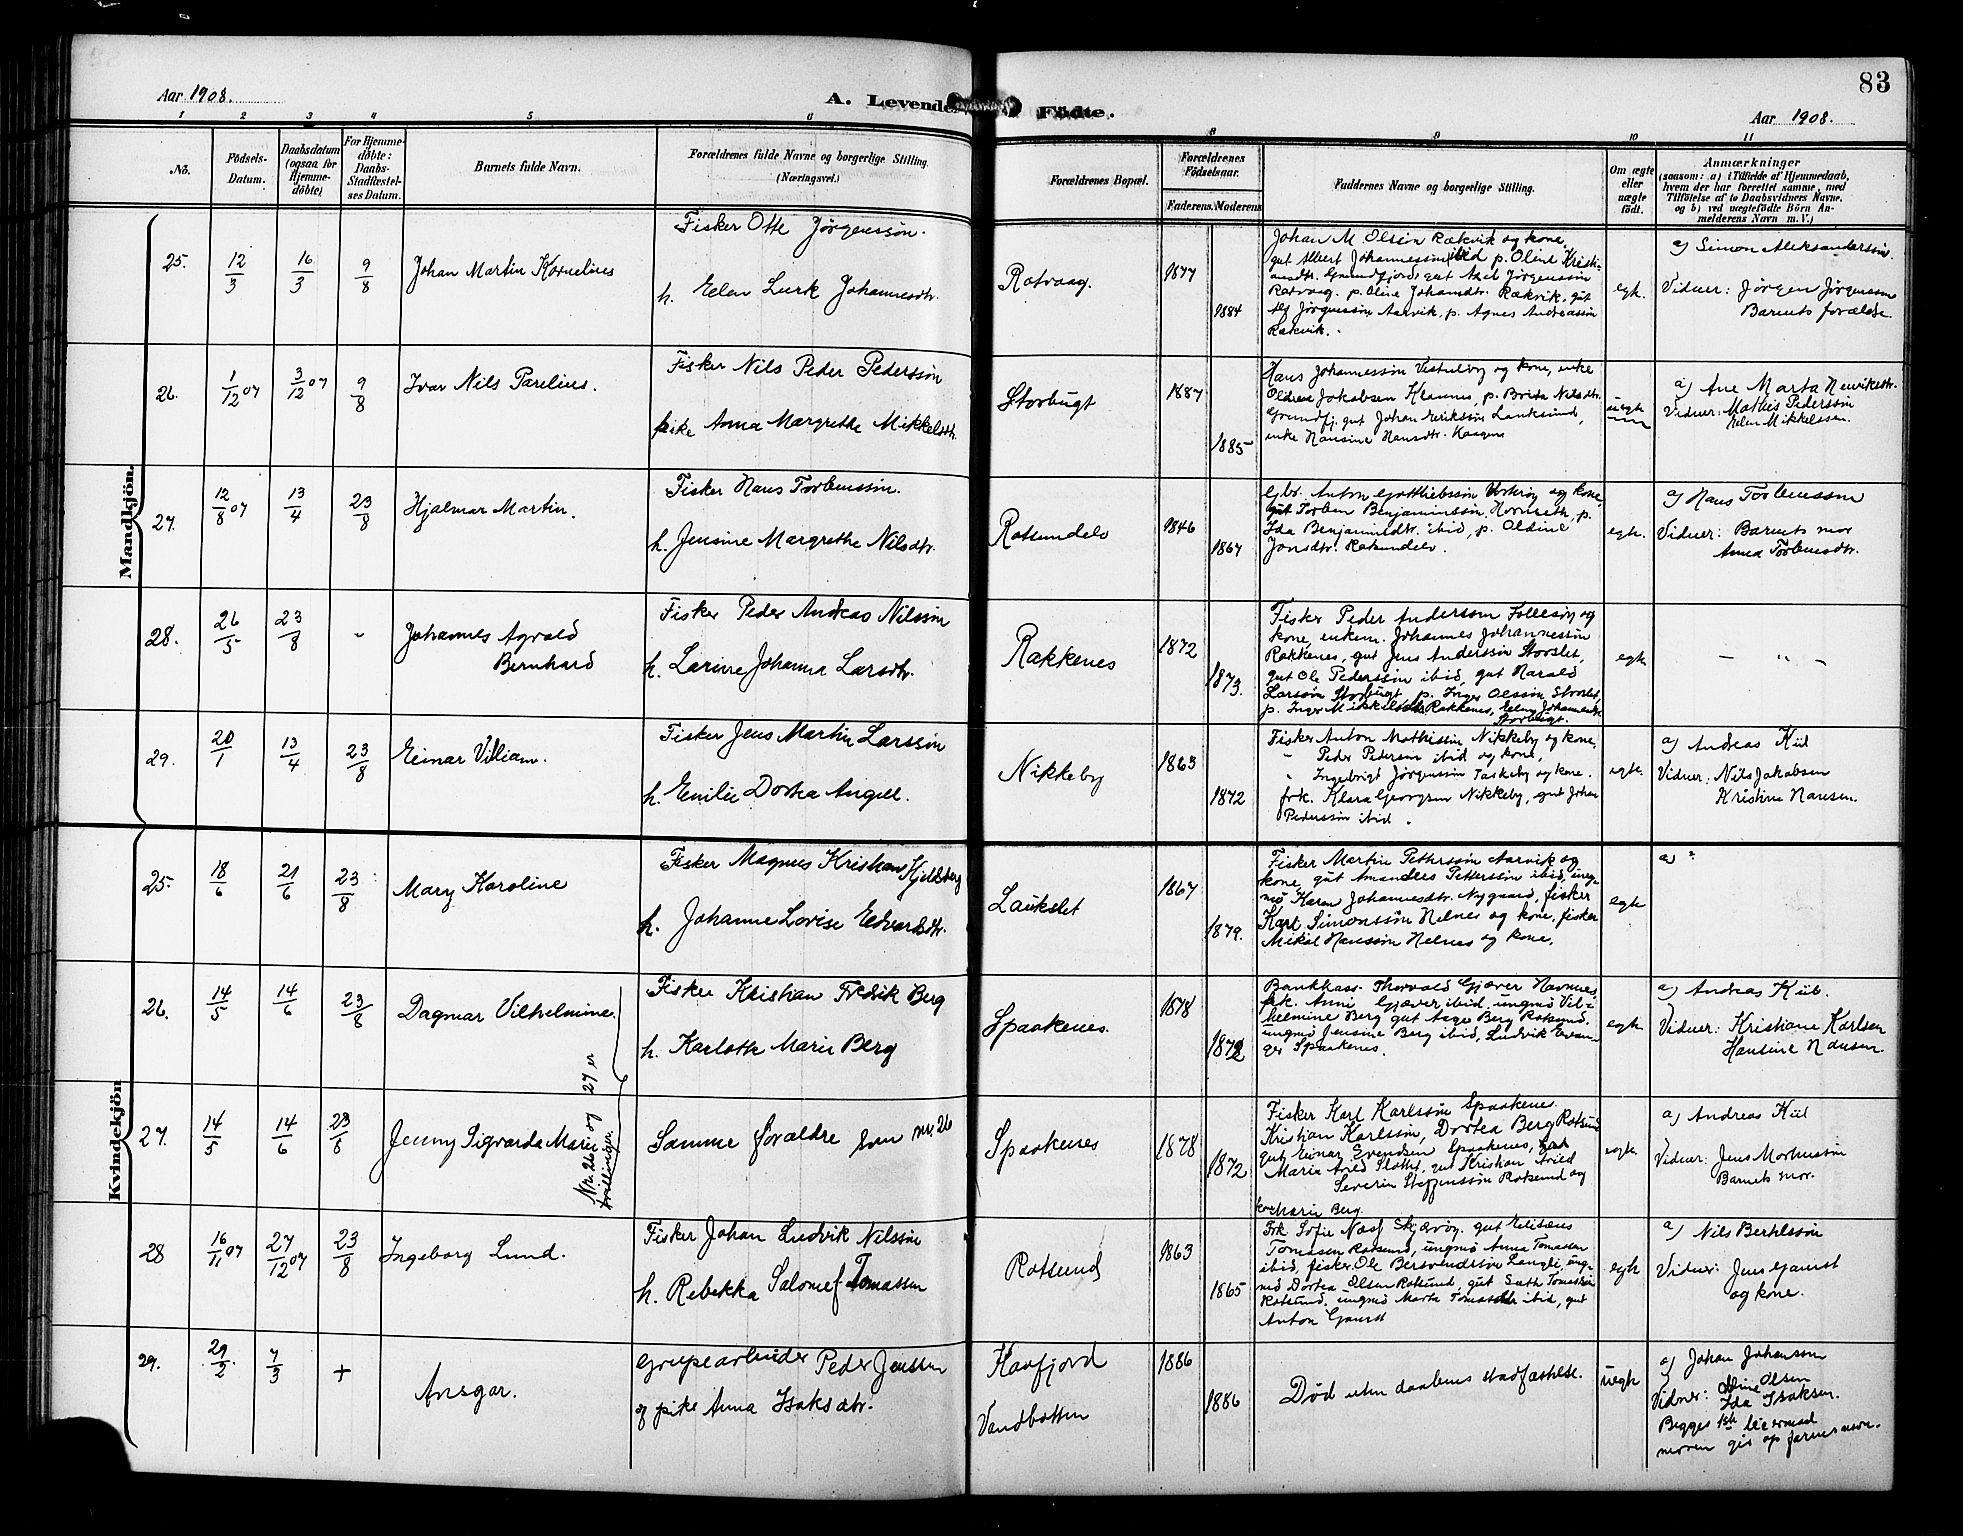 83
Aar 1908.
A. Levende Födte.
Aar 1908.
1 2 3 4 5 6 8 9 10 11
No.
Födsels-Datum.
Daabsdatum (ogsaa for Hjemme-döbte)
For Hjemme-döbte: Daabs-Stadfæstel-ses Datum.
Barnets fulde Navn.
Forældrenes fulde Navne og borgerlige Stilling.
(Næringsvei.)
Forældrenes Bopæl.
Forældrenes Födselsaar.
Faderens. Moderens
Faddernes Navne og borgerlige Stilling.
Om ægte eller uægte födt.
Anmærkninger
(saasom: a) i Tilfælde af Hjemmedaab,
hvem der har forrettet samme, med
Tilföielse af to Daabsvidners Navne,
og b) ved uægtefödte Börn An-
melderens Navn m. V.)
Mandkjön.
25. 12/3 16/3 9/8 Johan Martin Kornelius
Fisker Otto Jørgenssøn.
h. Elen Lurk Johannesdtr.
Rotvaag. 1877 1884
Johan M. Olsen Rækvik og kone,
gut Albert Johannessøn ibid p. Oline Kristi-
ansdtr. Grundfjord, gut Axel Jørgenssøn
Rotvaag. p. Oline Johansdtr. Rækvik, gut
Jørgenssøn Aarvik, p. Agnes Andreassøn
Rækvik.
egt.
a) Simon Aleksanderssøn.
Vidner: Jørgen Jørgenssøn
Barnets forældre.
26. 1/12 07 3/12 07 9/8 Ivar Nils Parelius.
Fisker Nils Peder Pederssøn
pike Anna Margrethe Mikkelsdtr.
Storbugt 1887 1885
Hans Johannessøn og kone, enke
Jakobsen p. Brita Nilsdtr.
Grundfj. gut Johan Erikssøn Lauksund,
enke Hansine Hansdtr. Kaagen
uegte
a) Ane Marta Henriksdtr.
Vidner: Mathis Pederssøn
Elen Mikkelssen.
27. 12/8 07 13/4 23/8 Hjalmar Martin.
Fisker Hans Torbenssøn.
h. Jensine Margrethe Nilsdtr.
Rotsundelv 1846 1867
Gbr. Anton Gottliebssøn og kone,
gut Torben Benjaminssøn, p.
Ida Benjaminsdtr. ibid, p. Oldine
Jonsdtr. Rotsundelv.
egte.
a) Hans Torbenssøn
Vidner: Barnets mor
Anna Torbensdtr.
28. 26/5 23/8 - Johannes Agvald
Bernhard
Fisker Peder Andreas Nilssøn
h. Larine Johanna Larsdtr.
Rakkenes 1872 1873.
Fisker Peder Anderssøn Follesøy og
kone, enkem. Johannes Johannessøn
Rakkenes, gut Jens Anderssøn Storslet,
gut Ole Pederssøn ibid, gut Harald
Larssøn Storbugt, p. Inger Olssøn Storslet,
p. Inger Mikkelsdtr. Rakkenes, Johannesdtr.
Storbugt.
egte
- „ -
29. 20/1 13/4 23/8 Einar Viliam.
Fisker Jens Martin Larssøn
h. Emilie Dortea Angell.
Nikkeby 1863 1872
Fisker Anton Mathissøn Nikkeby og kone,
" Peder Petersen ibid og kone,
" Ingebrigt Jørgenssøn Taskeby og kone.
frk. Klara Georgsen Nikkeby, gut Johan
Pederssøn ibid.
egte.
a) Andreas Kiil
Vidner: Nils Jakobsen
Kristine Hansen.
Kvindekjön
25. 18/6 21/6 23/8 Mary Karoline
Fisker Magnus Kristian Hjeldberg
h. Johanne Lovise Edvardsdtr.
Laukslet 1867 1879.
Fisker Martin Petterssøn Aarvik og
kone, gut Amandus Petterssøn ibid, ung-
mø Karen Johannesdtr. Nygaard, fisker
Karl Simonssøn Helnes og kone, fisker
Mikal Hanssøn Helnes og kone.
egte
a) ?
26. 14/5 14/6 23/8 Dagmar Vilhelmine.
Fisker Kristian Fredrik Berg
h. Karlotte Marie Berg
Spaakenes. 1878 1872
Bankkass. Thorvald Gjæver Havnnes,
frk. Anni Gjæver ibid, ungmø Vil-
helmine Berg gut Aage Berg Rotsund,
ungmø Jensine Berg ibid, Ludvik
Spaakenes.
egte
a) Andreas Kiil.
Vidner: Kristiane Karlsen
Hansine Hansen.
Nr. 26 og 27 er tvillinger.
27. 14/5 14/6 23/8 Jenny Sigvarda Marie
Samme forældre som nr. 26
Spaakenes 1878 1872
Fisker Karl Karlssøn Spaakenes.
Kristian Karlssøn, Dortea Berg Rotsund
gut Einar Evensen Spaakenes,
Maria Slottet, gut Kristian
Severin Steffenssøn Rotsund og
kone Marie Berg.
egte
a) Andreas Kiil
Vidner: Jens Morthenssøn
Barnets mor.
28 16/11 07 27/12 07 23/8 Ingeborg Lund.
Fisker Johan Ludvik Nilssøn
h. Rebekka Salomef Tomassen
Rotsund 1863 1865
Frk Sofie Næss Skjærvøy. gut Elisæus
Tomassen Rotsund, ungmø Anna Tomassen
ibid, fisker Ole Bersvendssøn Langli, ung-
mø Dortea Olsen Rotsund, gut Tomassen
Rotsund, ungmø Marta Tomasdtr ibid, gut
Anton Gamst
egte
a) Nils Bertelssøn
Vidner: Jens Gamst
og kone.
29. 29/2 7/3 + Ansgar.
Grupearbeider Peder Jenssen
og pike Anna Isaksdtr.
Kaafjord
Vandbotten
1886 1886
Død uten daabens stadfæstelse.
uegte
a) Johan Johanssøn
Vidner: Oline Olsen
Ida Isaksen.
Begges 1ste
moren